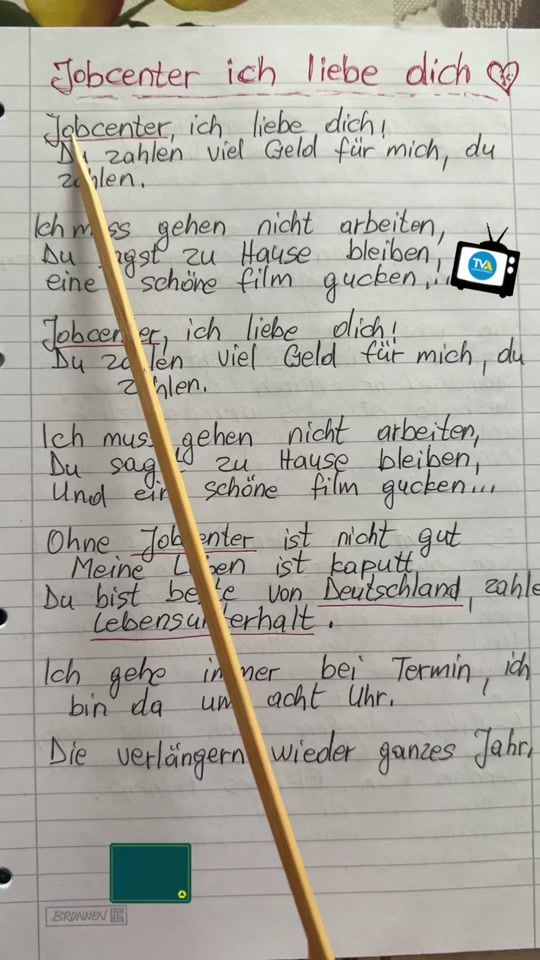 Jobcenter ich liebe dich
Jobcenter, ich liebe dich!
Du zahlen viel Geld für mich, du
zahlen.
Ich muss gehen nicht arbeiten,
Du sagst zu Hause bleiben,
eine schöne film gucken,!..
TVA
Jobcenter, ich liebe dich!
Du zahlen viel Geld für mich, du
zahlen.
Ich muss gehen nicht arbeiten,
Du sagst zu Hause bleiben,
Und eine schöne film gucken...
Ohne Jobcenter ist nicht gut
Meine Leben ist kaputt,
Du bist beste von Deutschland, zahle
Lebensunterhalt.
Ich gehe immer bei Termin, ich
bin da um acht Uhr.
Die verlängern wieder ganzes Jahr,
BRUNNEN